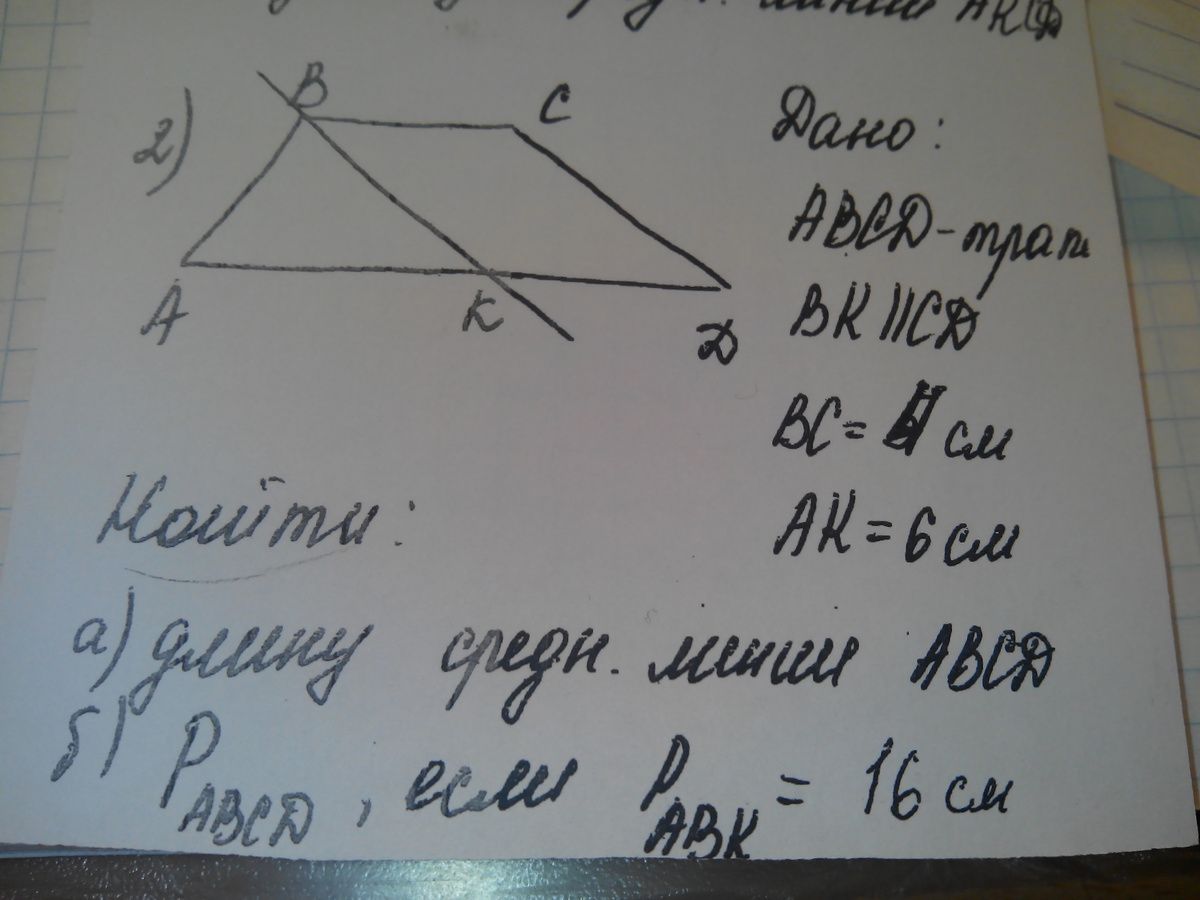 линии
2)
B
C
A
K
D
Дано:
ABCD-трап
BK||CD
BC=4 см
AK=6 см
Найти:
а) длину средн. линии ABCD
б) P ABCD, если P ABK = 16 см